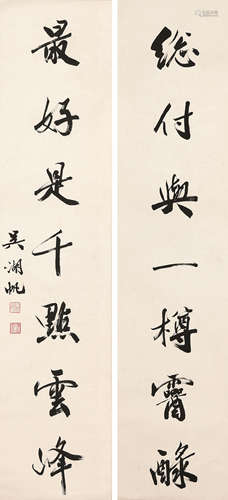 總付與一樽霄醁
最好是千點雲峰
吳湖帆